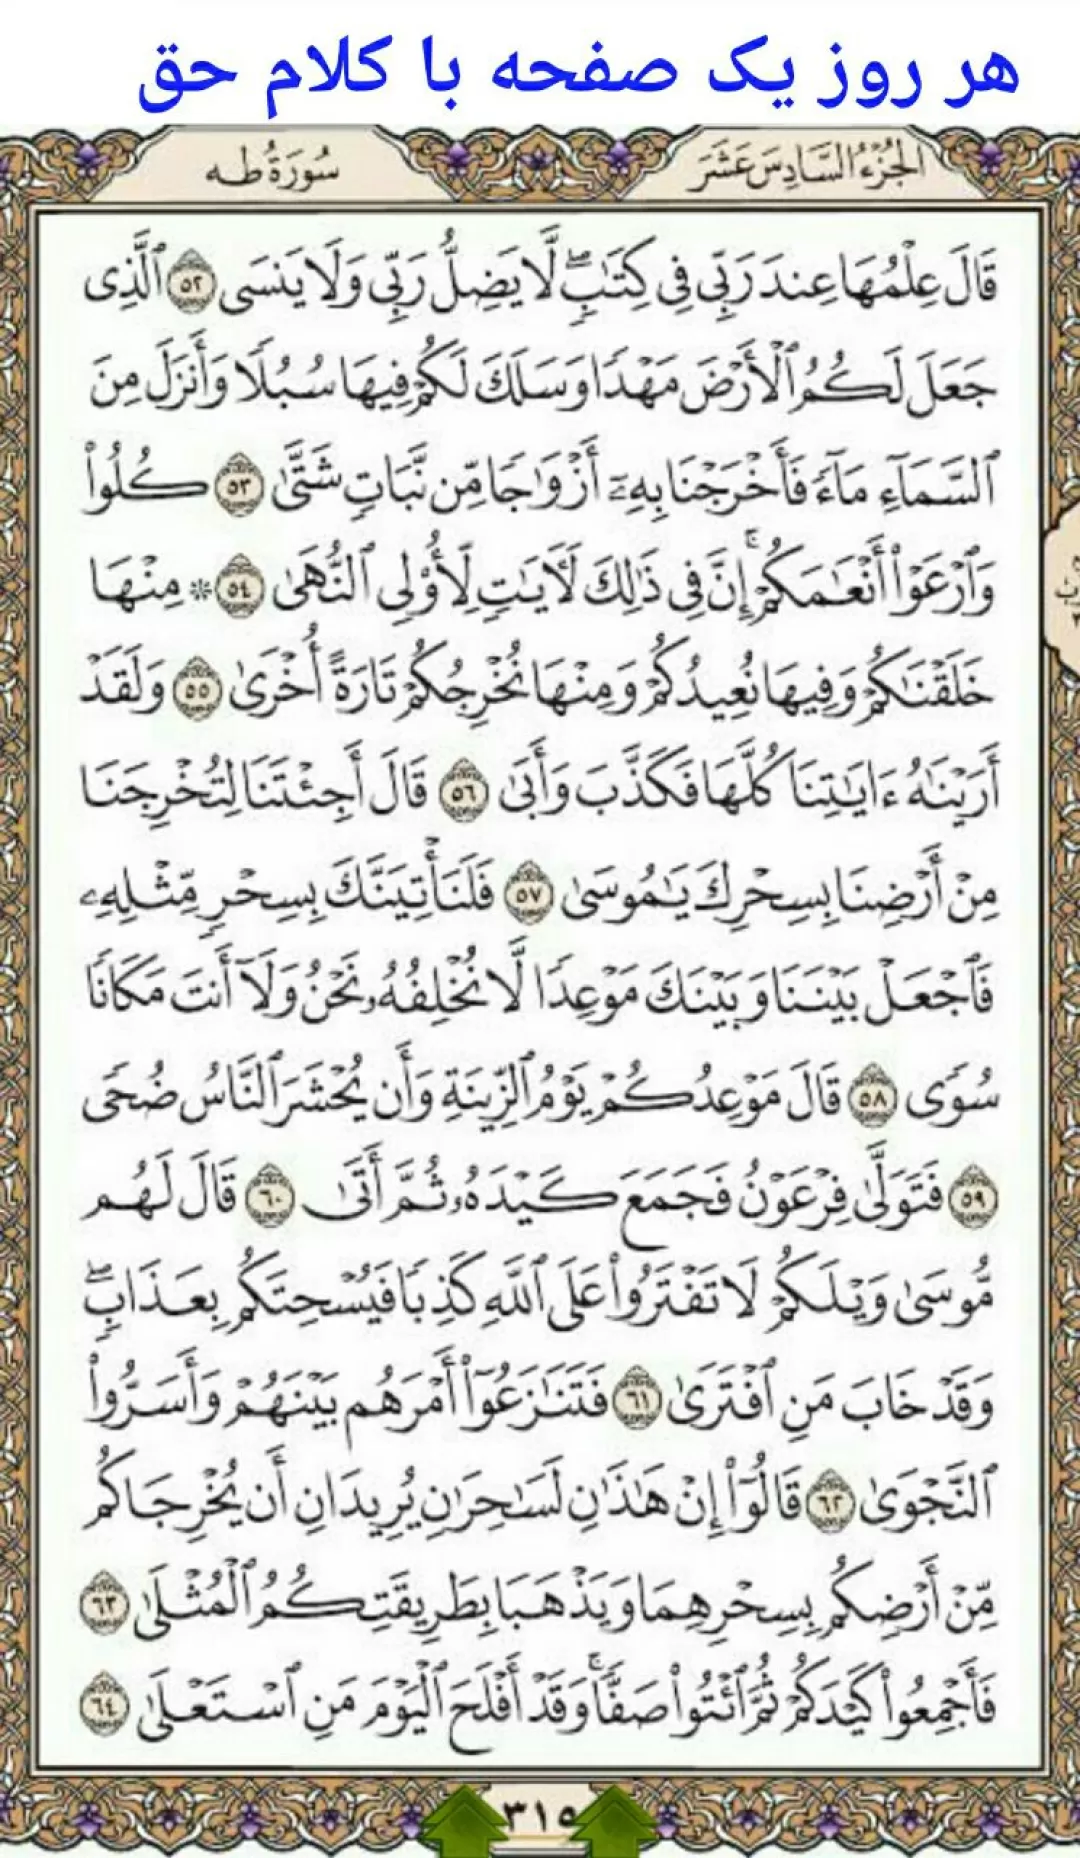 هر روز یک صفحه با کلام حق
الجُزْءُ السَّادِسَ عَشَرَ
سُورَةُ طه
قَالَ عِلْمُهَا عِندَ رَبِّي فِي كِتَٰبٍۖ لَّا يَضِلُّ رَبِّي وَلَا يَنسَى ٥٢ ٱلَّذِي
جَعَلَ لَكُمُ ٱلْأَرْضَ مَهْدًا وَسَلَكَ لَكُمْ فِيهَا سُبُلًا وَأَنزَلَ مِنَ
ٱلسَّمَآءِ مَآءً فَأَخْرَجْنَا بِهِۦٓ أَزْوَٰجًا مِّن نَّبَاتٍ شَتَّىٰ ٥٣ كُلُوا۟
وَٱرْعَوْا۟ أَنْعَٰمَكُمْۗ إِنَّ فِي ذَٰلِكَ لَـَٔايَٰتٍ لِّأُو۟لِي ٱلنُّهَىٰ ٥٤ ۞ مِنْهَا
خَلَقْنَٰكُمْ وَفِيهَا نُعِيدُكُمْ وَمِنْهَا نُخْرِجُكُمْ تَارَةً أُخْرَىٰ ٥٥ وَلَقَدْ
أَرَيْنَٰهُ ءَايَٰتِنَا كُلَّهَا فَكَذَّبَ وَأَبَىٰ ٥٦ قَالَ أَجِئْتَنَا لِتُخْرِجَنَا
مِنْ أَرْضِنَا بِسِحْرِكَ يَٰمُوسَىٰ ٥٧ فَلَنَأْتِيَنَّكَ بِسِحْرٍ مِّثْلِهِۦ
فَٱجْعَلْ بَيْنَنَا وَبَيْنَكَ مَوْعِدًا لَّا نُخْلِفُهُۥ نَحْنُ وَلَآ أَنتَ مَكَانًا
سُوًى ٥٨ قَالَ مَوْعِدُكُمْ يَوْمُ ٱلزِّينَةِ وَأَن يُحْشَرَ ٱلنَّاسُ ضُحًى
٥٩ فَتَوَلَّىٰ فِرْعَوْنُ فَجَمَعَ كَيْدَهُۥ ثُمَّ أَتَىٰ ٦٠ قَالَ لَهُم
مُّوسَىٰ وَيْلَكُمْ لَا تَفْتَرُوا۟ عَلَى ٱللَّهِ كَذِبًا فَيُسْحِتَكُم بِعَذَابٍۖ
وَقَدْ خَابَ مَنِ ٱفْتَرَىٰ ٦١ فَتَنَٰزَعُوٓا۟ أَمْرَهُم بَيْنَهُمْ وَأَسَرُّوا۟
ٱلنَّجْوَىٰ ٦٢ قَالُوٓا۟ إِنْ هَٰذَٰنِ لَسَٰحِرَٰنِ يُرِيدَانِ أَن يُخْرِجَاكُم
مِّنْ أَرْضِكُم بِسِحْرِهِمَا وَيَذْهَبَا بِطَرِيقَتِكُمُ ٱلْمُثْلَىٰ ٦٣
فَأَجْمِعُوا۟ كَيْدَكُمْ ثُمَّ ٱئْتُوا۟ صَفًّاۚ وَقَدْ أَفْلَحَ ٱلْيَوْمَ مَنِ ٱسْتَعْلَىٰ ٦٤
٣١٥